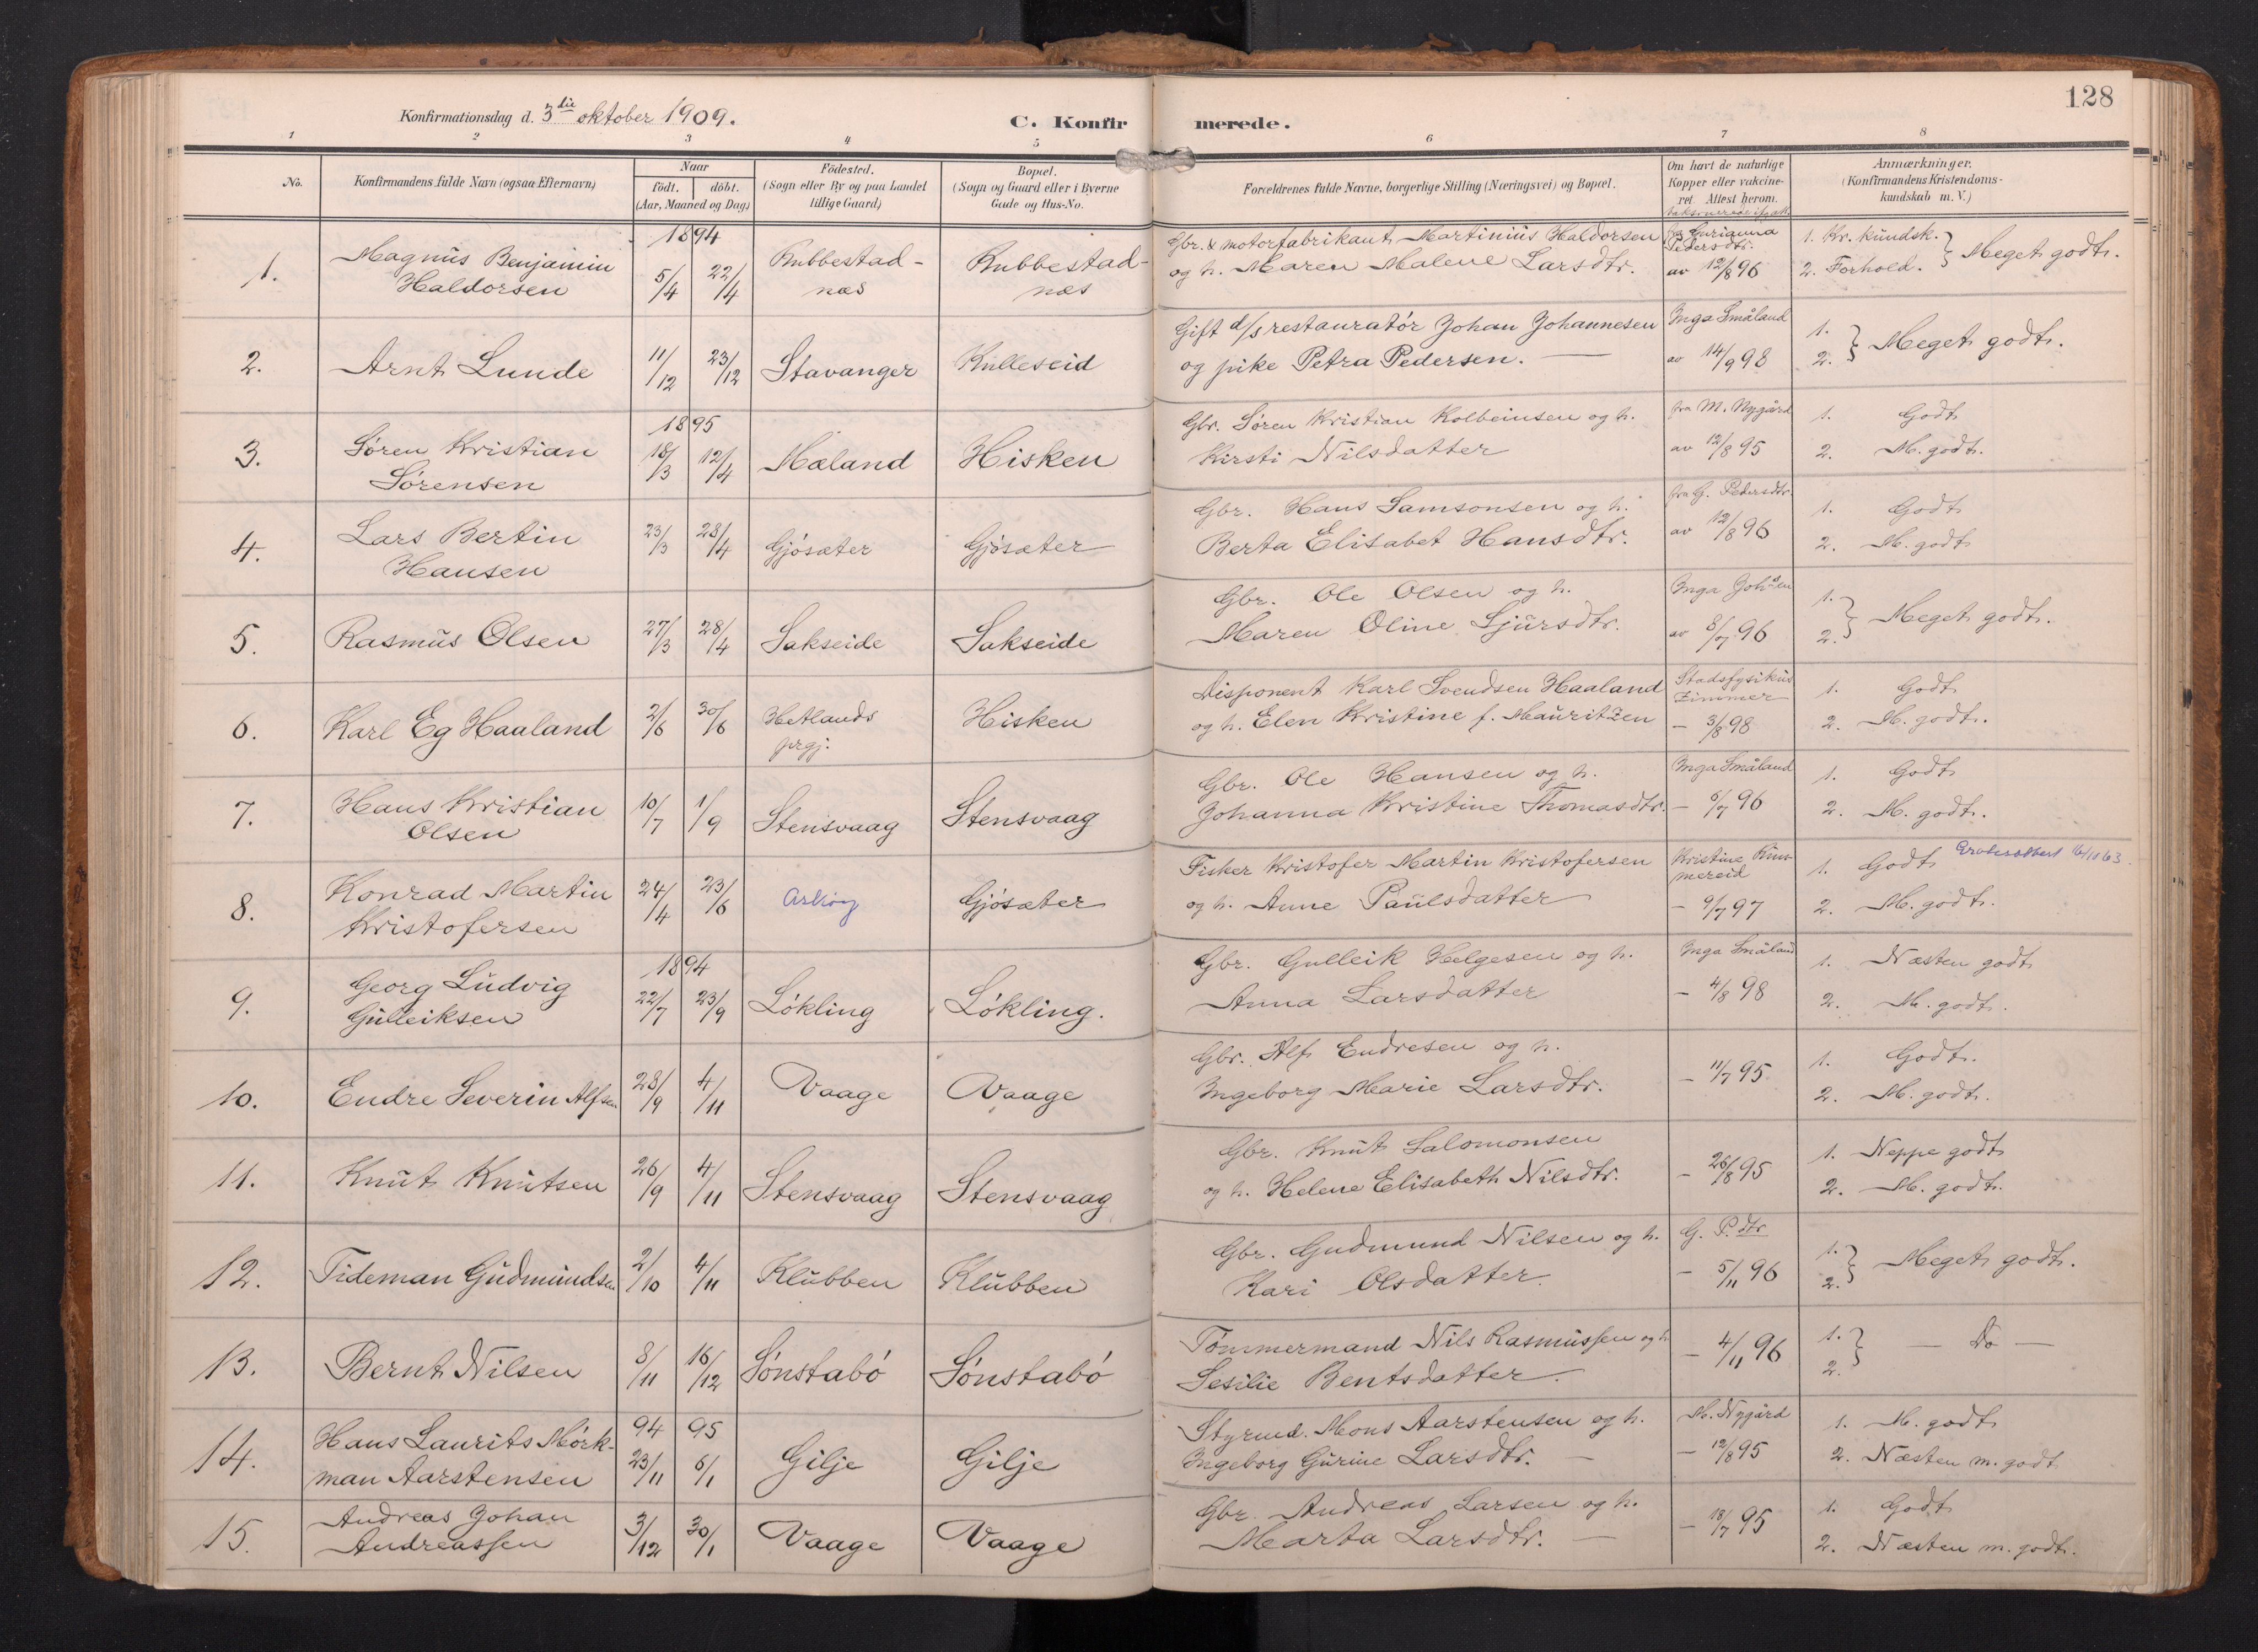 128
Konfirmationsdag d. 3die oktober 1909.
C. Konfirmerede.
1 2 3 4 5 6 7 8
No.
Konfirmandens fulde Navn (ogsaa Efternavn)
Naar
födt. döbt.
(Aar, Maaned og Dag)
Födested.
(Sogn eller By og paa Landet
tillige Gaard)
Bopæl.
(Sogn og Gaard eller i Byerne
Gade og Hus-No.
Forældrenes fulde Navne, borgerlige Stilling (Næringsvei) og Bopæl.
Om havt de naturlige
Kopper eller vakcine-
ret. Attest herom.
Anmærkninger.
(Konfirmandens Kristendoms-
kundskab m. V.)
1894
1. Magnus Benjamin Haldorsen 5/4 22/4 Rubbestad-næs Rubbestad-næs
Gbr. & motorfabrikant Martinius Haldorsen
og h. Maren Malene Larsdtr.
Pedersdtr. av 12/8 96
1. Kr. kundsk. 2. Forhold. } Meget godt.
2. Arnt Lunde 11/12 23/12 Stavanger Kulleseid
Gift d/s restauratör Johan Johannesen
og pike Petra Pedersen. —
Inga Småland av 14/9 98
1. 2. } Meget godt.
1895
3. Sören Kristian Sörensen 18/3 12/4 Mæland Hisken
Gbr. Sören Kristian Kolbeinsen og h.
Kirsti Nilsdatter
fra M. Nygård av 12/8 95
1. Godt
2. M. godt.
4. Lars Bertin Hansen 23/3 28/4 Gjösæter Gjösæter
Gbr. Hans Samsonsen og h.
Berta Elisabet Hansdtr.
fra G. Pedersdtr. av 12/8 96
1. Godt
2. M. godt
5. Rasmus Olsen 27/3 28/4 Sakseide Sakseide
Gbr. Ole Olsen og h.
Maren Oline Sjursdtr.
Inga Johsen av 8/7 96
1. 2. } Meget godt.
6. Karl Eg Haaland 2/6 30/6 Hetlands prgj. Hisken
Disponent Karl Svendsen Haaland
og h. Elen Kristine f. Mauritzen
Stadsfysikus Zimmer — 3/8 98
1. Godt
2. M. godt.
7. Hans Kristian Olsen 10/7 1/9 Stensvaag Stensvaag
Gbr. Ole Hansen og h.
Johanna Kristine Thomasdtr.
Inga Småland — 6/7 96
1. Godt
2. M. godt.
8. Konrad Martin Kristofersen 24/4 23/6 Askøy Gjösæter
Fisker Kristofer Martin Kristofersen
og h. Anne Paulsdatter
Kristine — 9/7 97
1. Godt
2. M. godt.
1894
9. Georg Ludvig Gulleiksen 22/7 23/9 Lökling Lökling.
Gbr. Gulleik Helgesen og h.
Anna Larsdatter
Inga Småland — 4/8 98
1. Næsten godt
2. M. godt.
10. Endre Severin Alfsen 28/9 4/11 Vaage Vaage
Gbr. Alf Endresen og h.
Ingeborg Marie Larsdtr.
— 11/7 95
1. Godt.
2. M. godt.
11. Knut Knutsen 26/9 4/11 Stensvaag Stensvaag
Gbr. Knut Salomonsen
og h. Helene Elisabeth Nilsdtr.
— 26/8 95
1. Neppe godt
2. M. godt.
12. Tideman Gudmundsen 2/10 4/11 Klubben Klubben
Gbr. Gudmund Nilsen og h.
Kari Olsdatter.
G. P.dtr — 5/11 96
1. 2. } Meget godt.
13. Bernt Nilsen 8/11 16/12 Sönstabö Sönstabö
Tömmermand Nils Rasmussen og h
Sesilie Bentsdatter.
— 4/11 96
1. 2. } — Do —
94 95
14. Hans Laurits Mörk-man Aarstensen 23/11 6/1 Gilje Gilje
Styrmd. Mons Aarstensen og h.
Ingeborg Gurine Larsdtr. —
M. Nygård — 12/8 95
1. M. godt
2. Næsten m. godt
15. Andreas Johan Andreassen 3/12 30/1 Vaage Vaage
Gbr. Andreas Larsen og h.
Marta Larsdtr. —
— 18/7 95
1. Godt
2. Næsten m. godt.